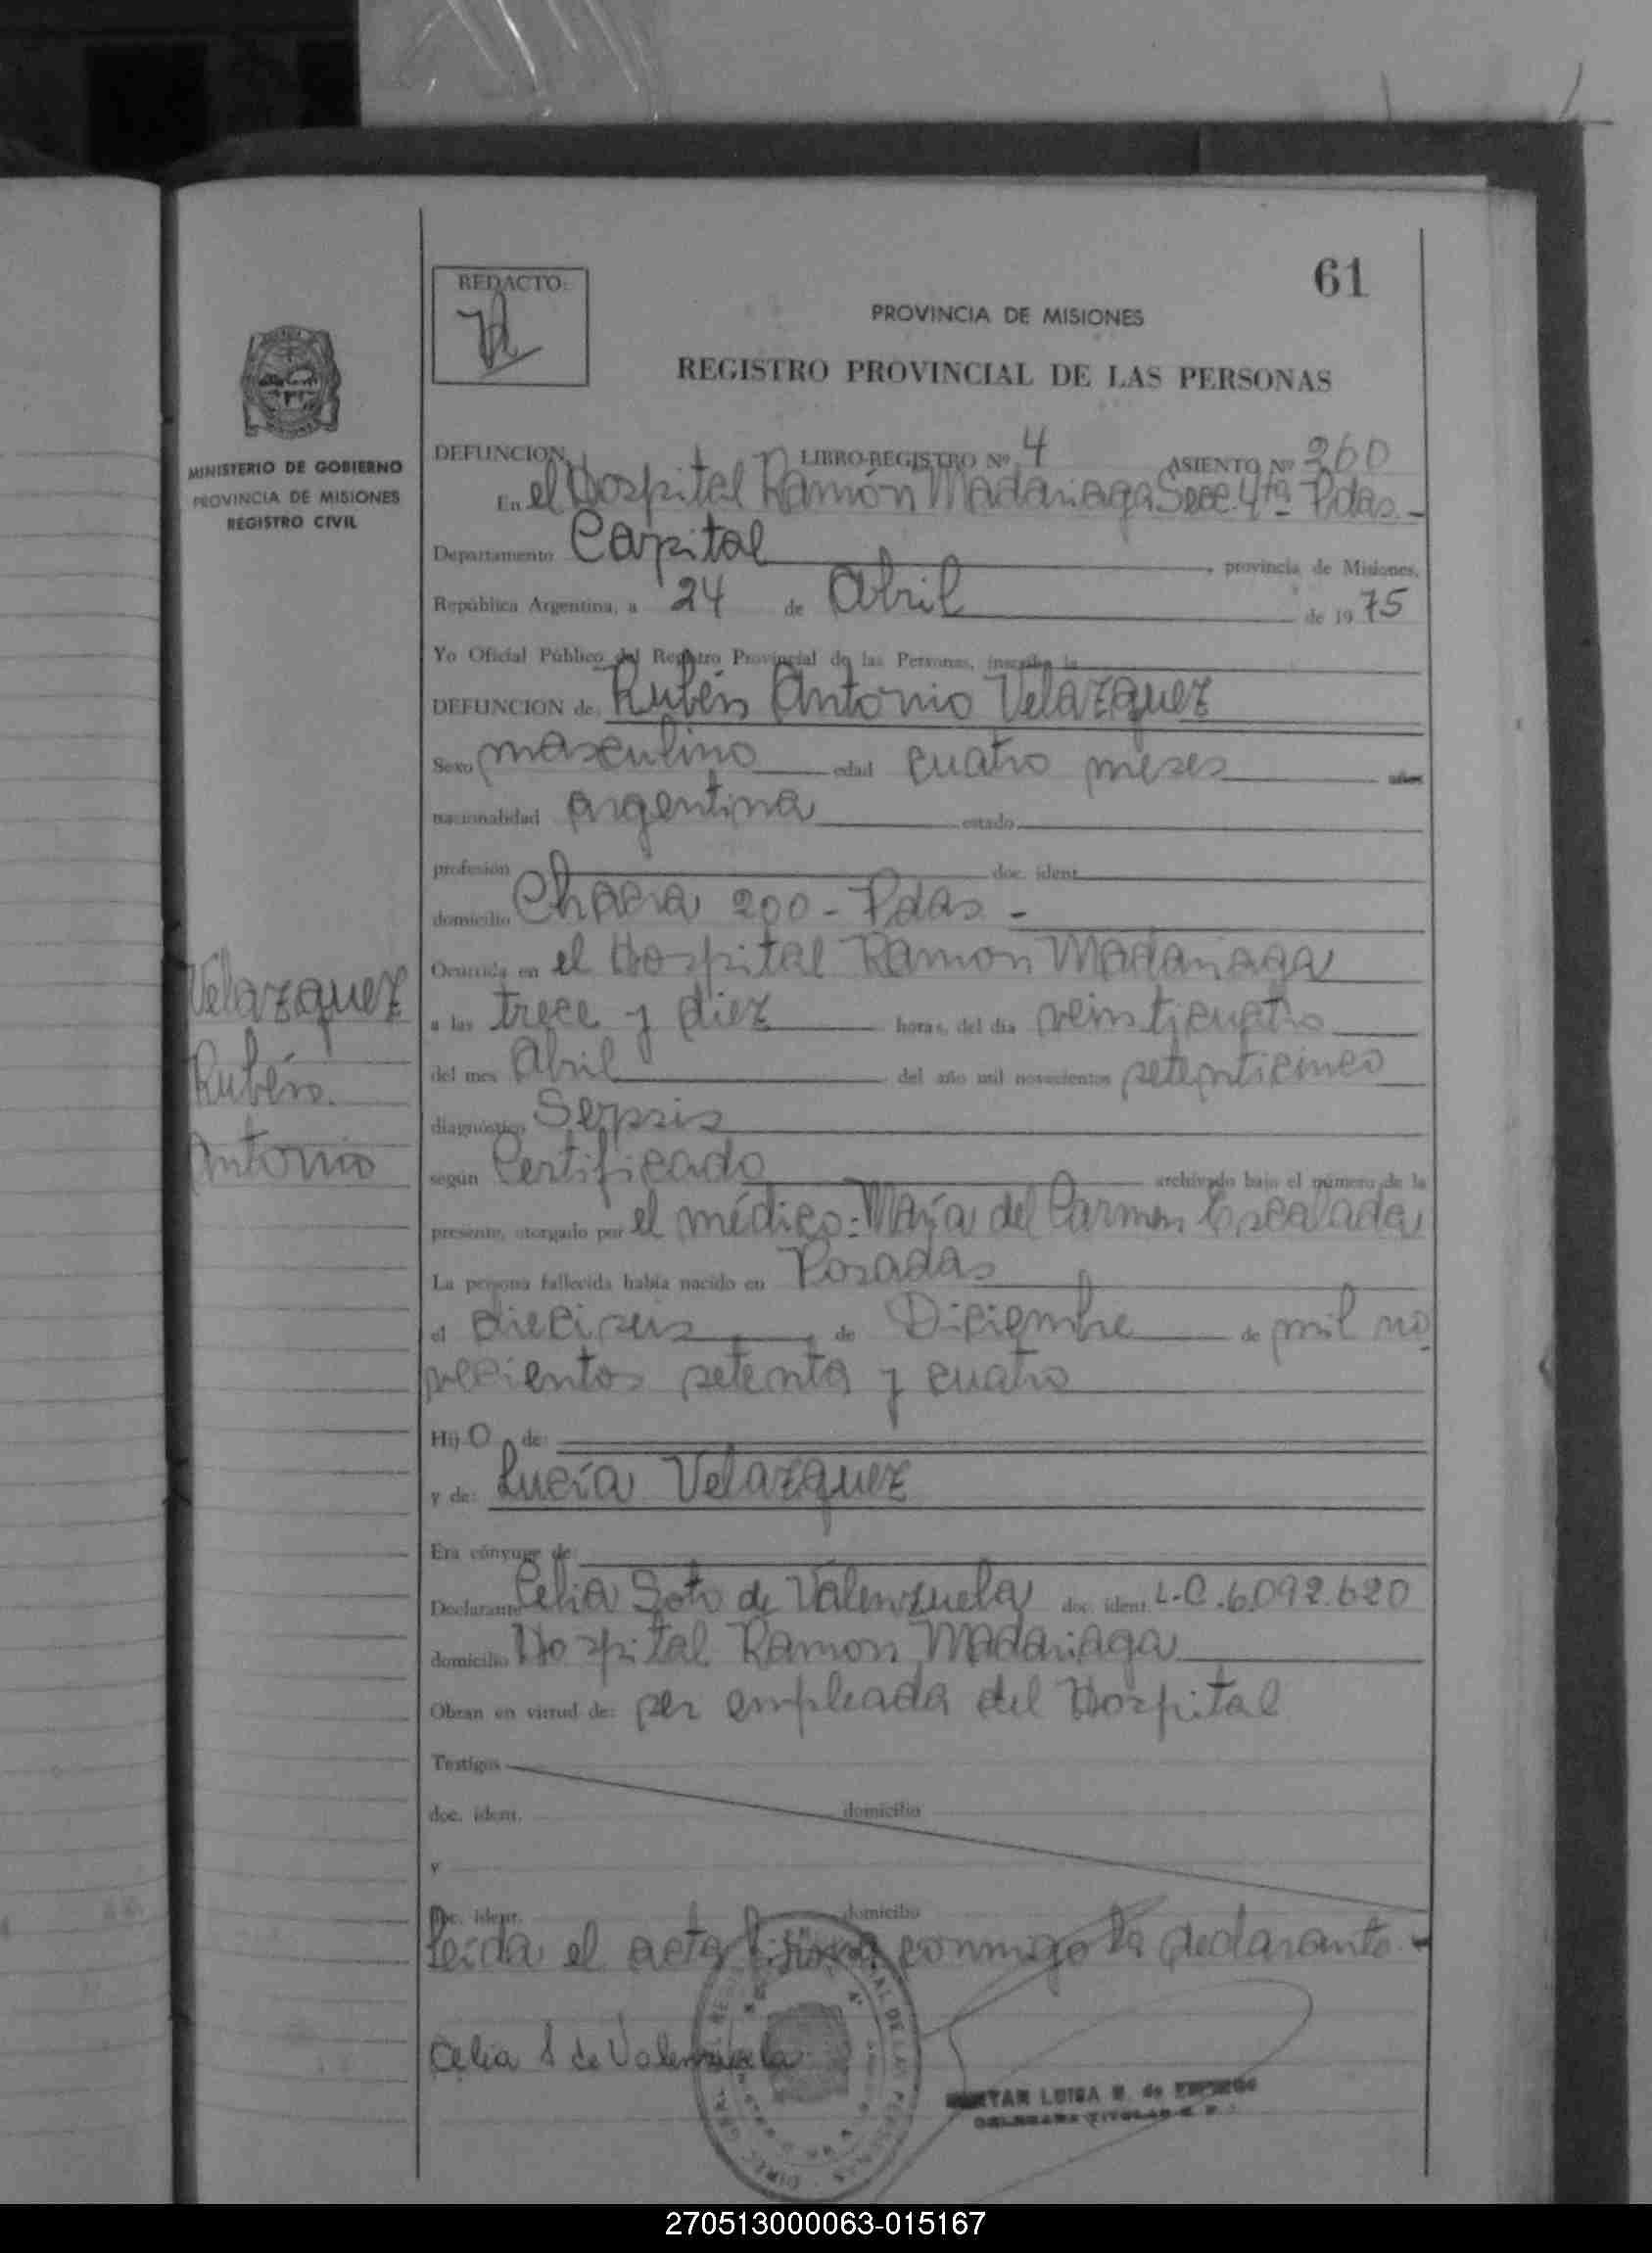 61
REDACTO:
PROVINCIA DE MISIONES
REGISTRO PROVINCIAL DE LAS PERSONAS
MINISTERIO DE GOBIERNO
PROVINCIA DE MISIONES
REGISTRO CIVIL
DEFUNCION, LIBRO-REGISTRO Nº 4 ASIENTO Nº 360
En el Hospital Ramón Madariaga Secc. 4ta Pdas.-
Departamento Capital, provincia de Misiones,
República Argentina, a 24 de Abril de 1975
Yo Oficial Público del Registro Provincial de las Personas, inscribo la
DEFUNCION de: Rubén Antonio Velazquez
Sexo masculino edad cuatro meses años
nacionalidad argentina estado
profesión doc. ident.
domicilio Chacra 200 - Pdas -
Ocurrida en el Hospital Ramon Madariaga
a las trece y diez horas, del día veinticuatro
del mes Abril del año mil novecientos setenticinco
diagnóstico Sepsis
según Certificado archivado bajo el número de la
presente, otorgado por el médico: María del Carmen Escalada
La persona fallecida había nacido en Posadas
el dieciseis de Diciembre de mil no
vecientos setenta y cuatro
Hijo de:
y de: Lucía Velazquez
Era cónyuge de:
Declarante Celia Soto de Valenzuela doc. ident. L.C. 6.092.620
domicilio Hospital Ramon Madariaga
Obran en virtud de: ser empleada del Hospital
Testigos
doc. ident. domicilio
y
doc. ident. domicilio
Leída el acta firma conmigo la declarante.-
Celia S de Valenzuela
LUISA
Velazquez
Rubén
Antonio
270513000063-015167